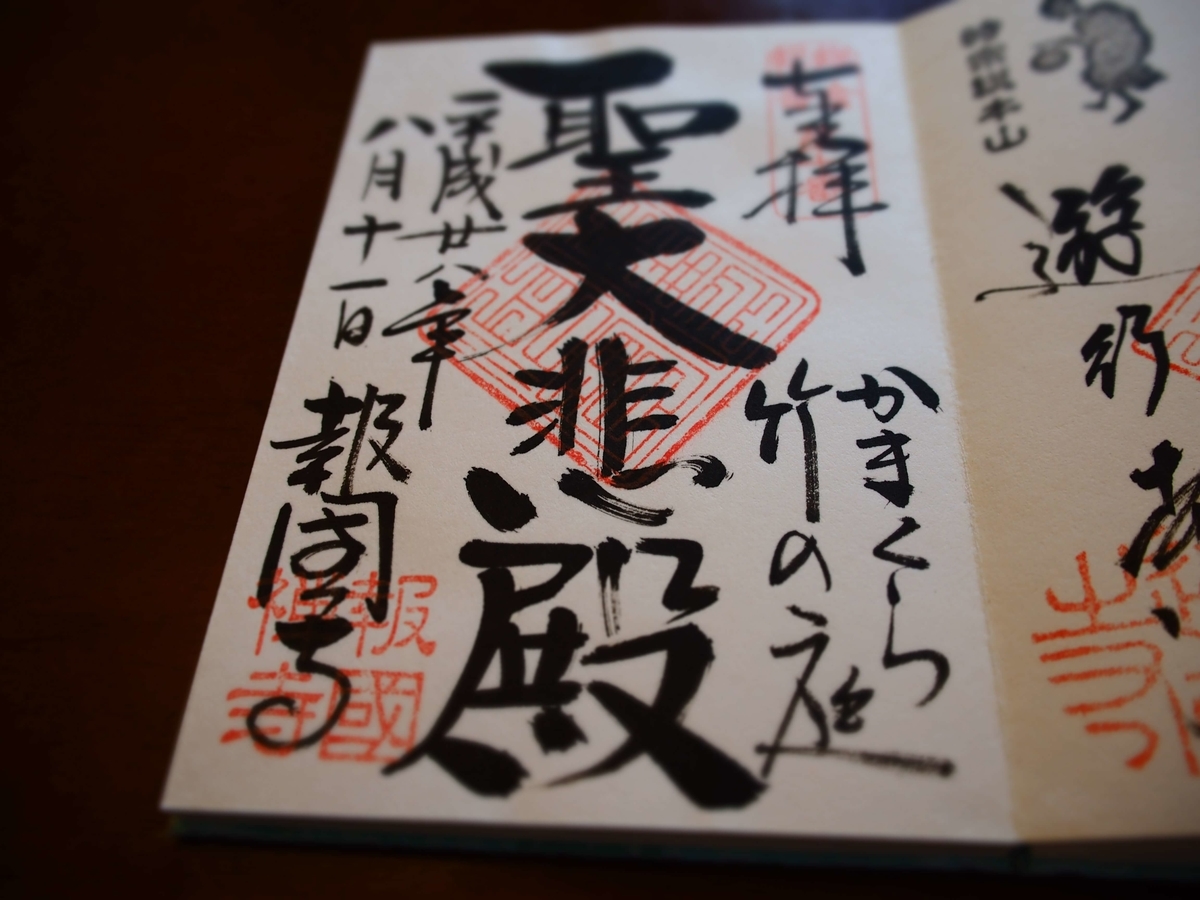 時宗総本山
遊行
奉拝
かまくら
竹の庭
聖大悲殿
平成廿八年
八月十一日
報國寺
報國
禅寺